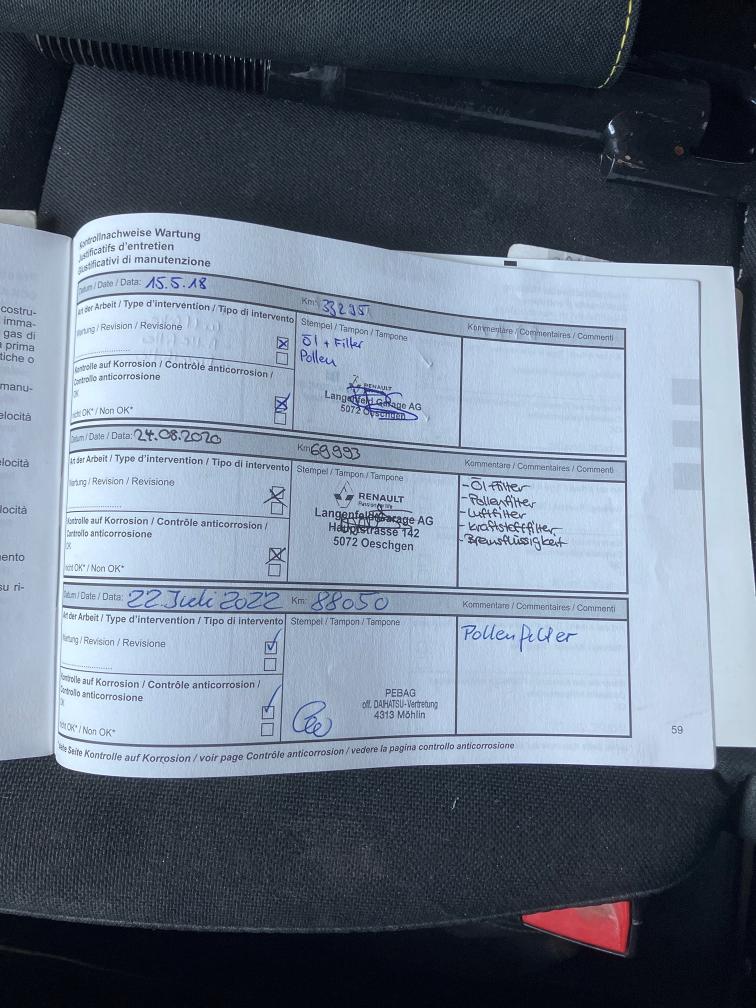 Kontrollnachweise Wartung
Justificatifs d'entretien
Giustificativi di manutenzione
Datum / Date / Data: 15.5.18 Km: 33295
Art der Arbeit / Type d'intervention / Tipo di intervento
Stempel / Tampon / Tampone
Kommentare / Commentaires / Commenti
Wartung / Revision / Revisione
Öl + Filter
Pollen
Kontrolle auf Korrosion / Contrôle anticorrosion /
Controllo anticorrosione
OK
nicht OK* / Non OK*
RENAULT
Langenfeld Garage AG
5072 Oeschgen
Datum / Date / Data: 24.08.2020 Km: 69993
Art der Arbeit / Type d'intervention / Tipo di intervento
Stempel / Tampon / Tampone
Kommentare / Commentaires / Commenti
Wartung / Revision / Revisione
Kontrolle auf Korrosion / Contrôle anticorrosion /
Controllo anticorrosione
OK
nicht OK* / Non OK*
RENAULT
Langenfeld Garage AG
Hauptstrasse 142
5072 Oeschgen
- Öl Filter
- Pollenfilter
- Luftfilter
- Kraftstofffilter
- Bremsflüssigkeit
Datum / Date / Data: 22. Juli 2022 Km: 88050
Art der Arbeit / Type d'intervention / Tipo di intervento
Stempel / Tampon / Tampone
Kommentare / Commentaires / Commenti
Wartung / Revision / Revisione
Pollenfilter
Kontrolle auf Korrosion / Contrôle anticorrosion /
Controllo anticorrosione
OK
nicht OK* / Non OK*
PEBAG
off. DAIHATSU-Vertretung
4313 Möhlin
Seite Kontrolle auf Korrosion / voir page Contrôle anticorrosion / vedere la pagina controllo anticorrosione
59
costru-
imma-
gas di
prima
tiche o
manu-
elocità
elocità
locità
mento
su ri-